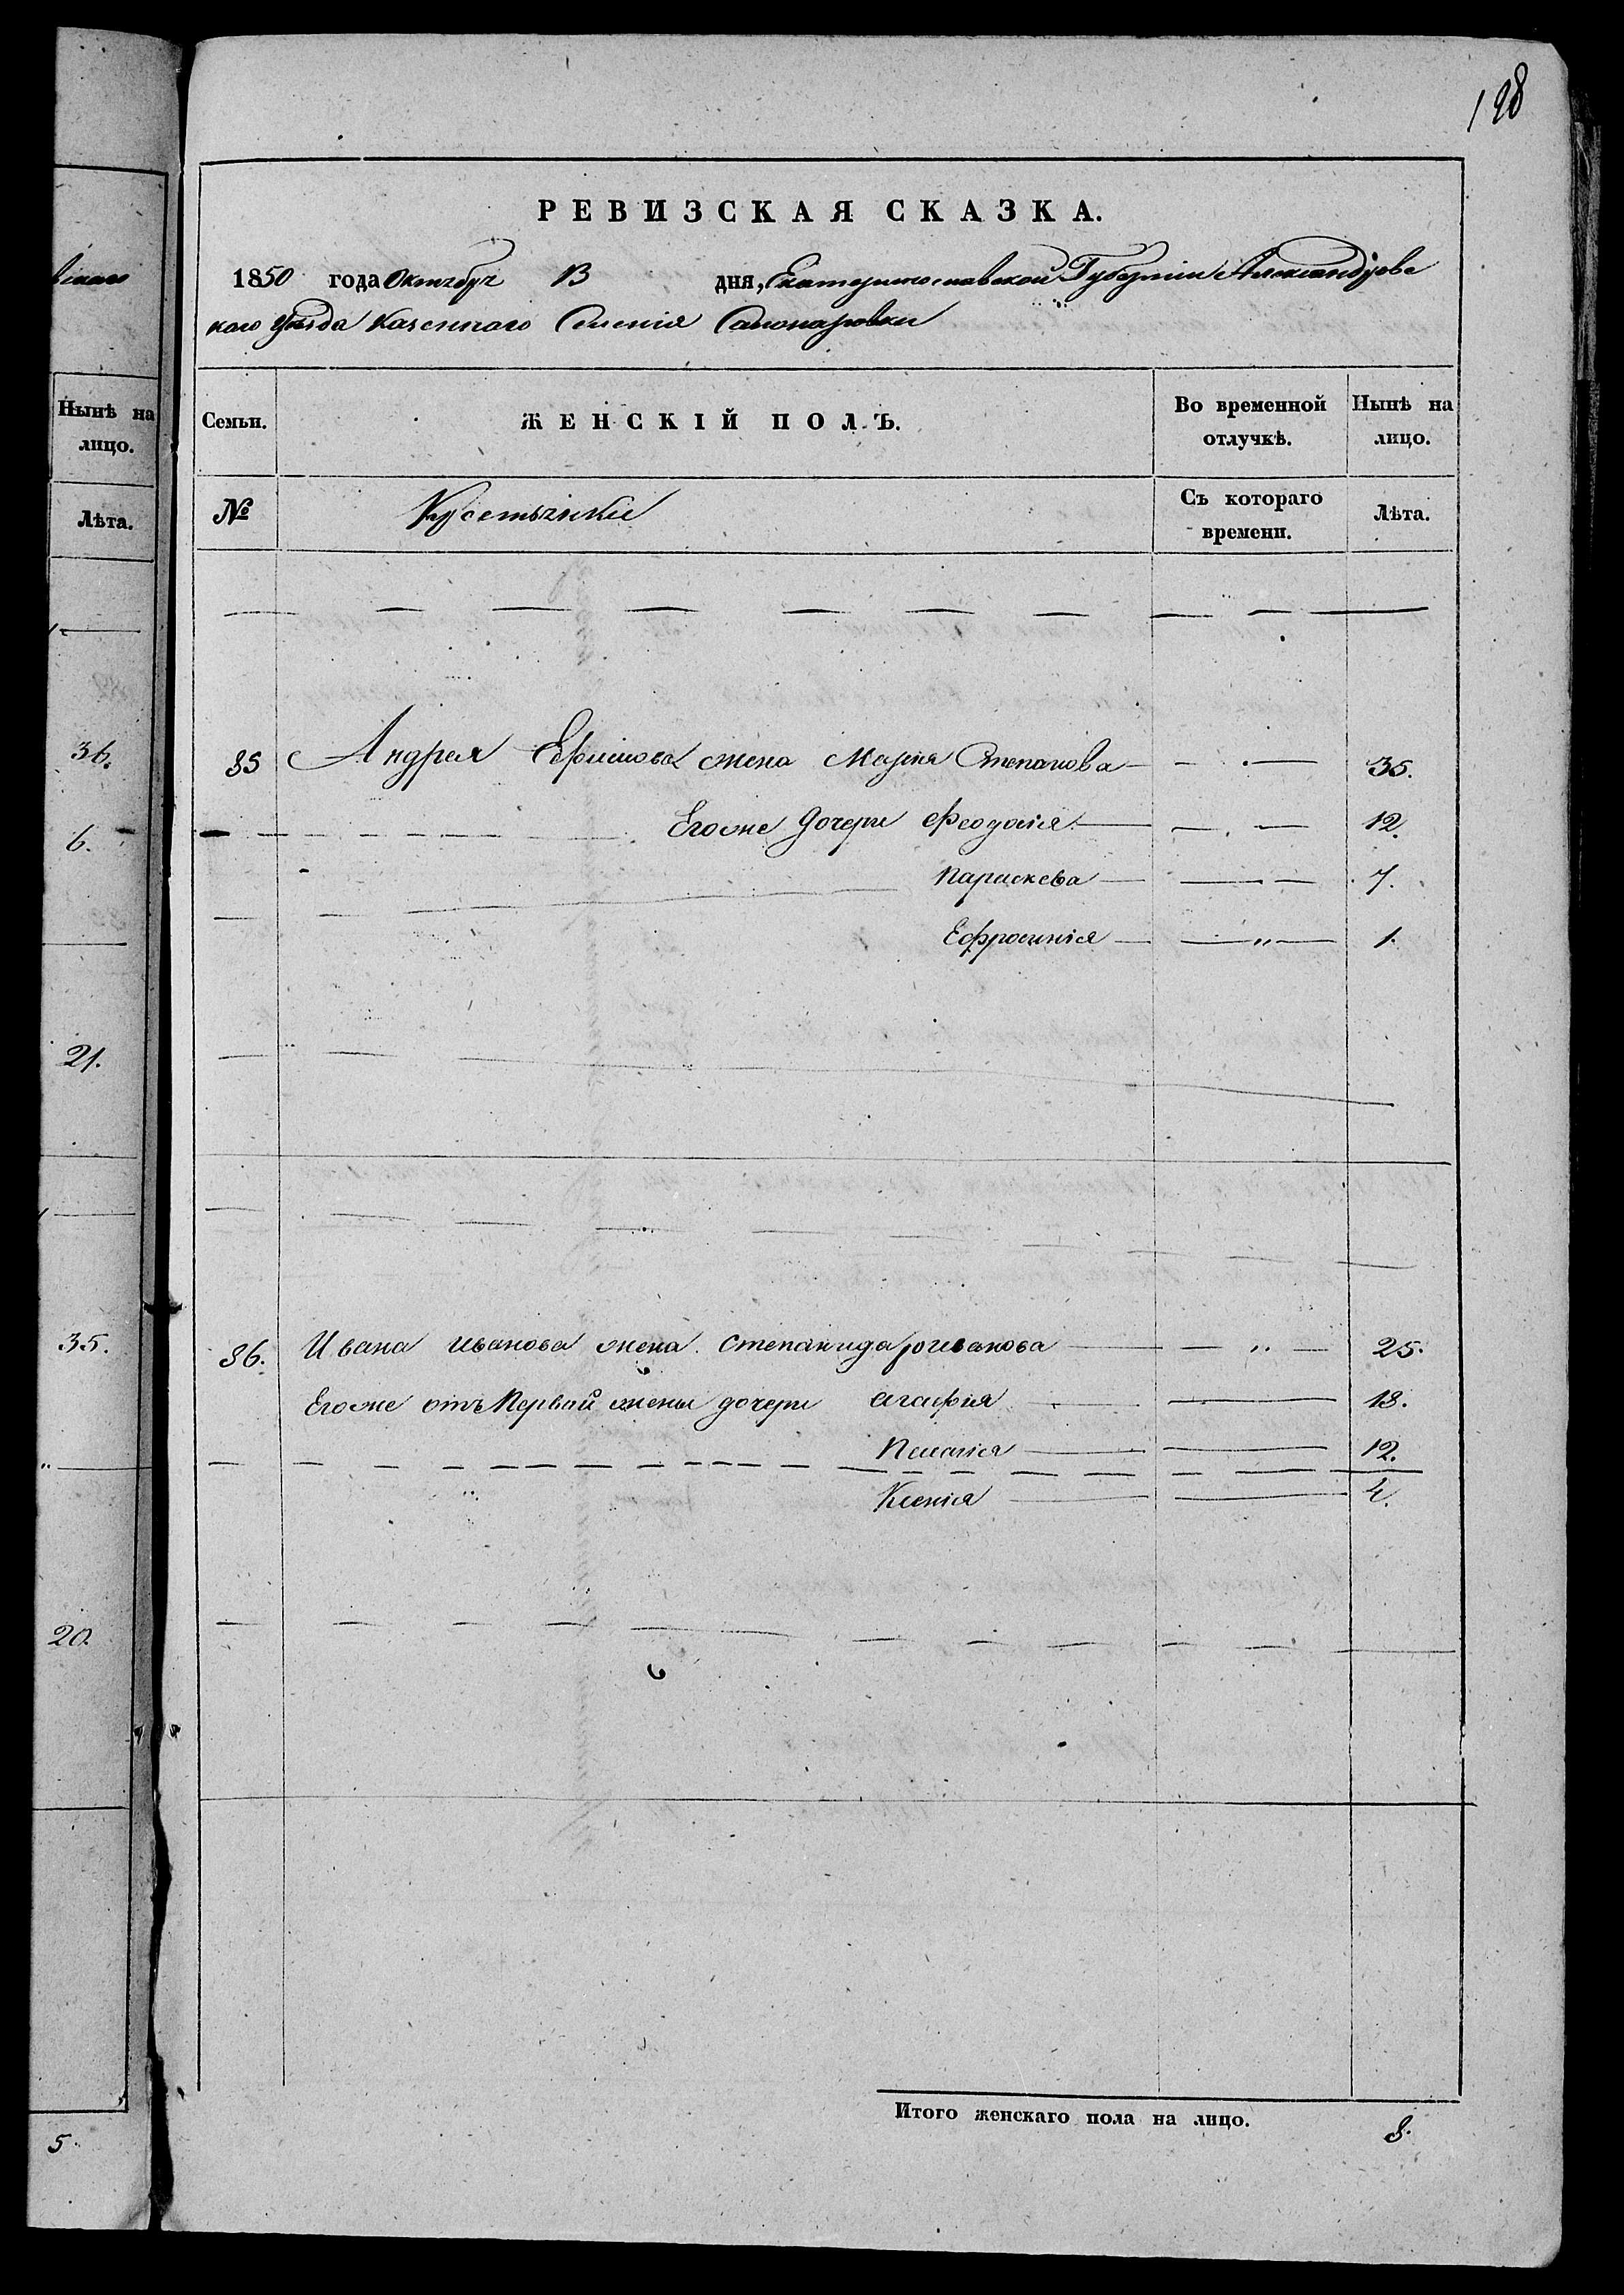 198
РЕВИЗСКАЯ СКАЗКА.
1850 года Октября В дня, Екатеринославской Губернии Александровс
каго уѣзда Казеннаго Селенія
Нынѣ на лицо.
Лѣта.
36.
6.
21.
35.
20.
5.
Семьи. ЖЕНСКІЙ ПОЛЪ. Во временной отлучкѣ. Нынѣ на лицо.
№ Съ котораго времени. Лѣта.
85 Андрея Ефимова жена Марія Степанова 35.
Егоже дочери Феодосія 12.
Параскева 7.
Ефросинія 1.
86. Ивана Иванова жена Степанида 25.
Егоже отъ Первой жены дочери Агафия 18.
Пелагія 12.
Ксенія 4.
Итого женскаго пола на лицо. 8.